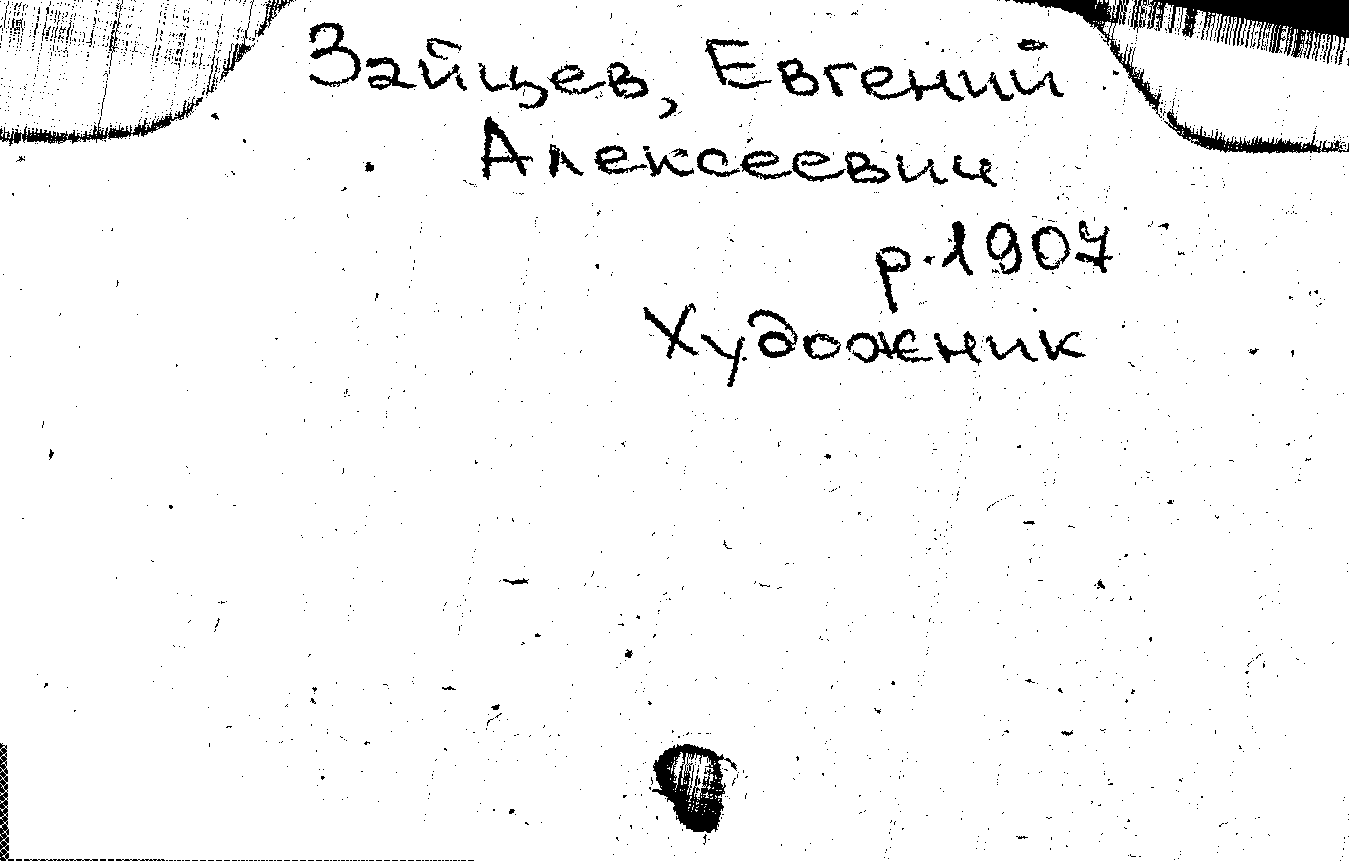 Зайцев, Евгений
Алексеевич
р. 1907
Художник